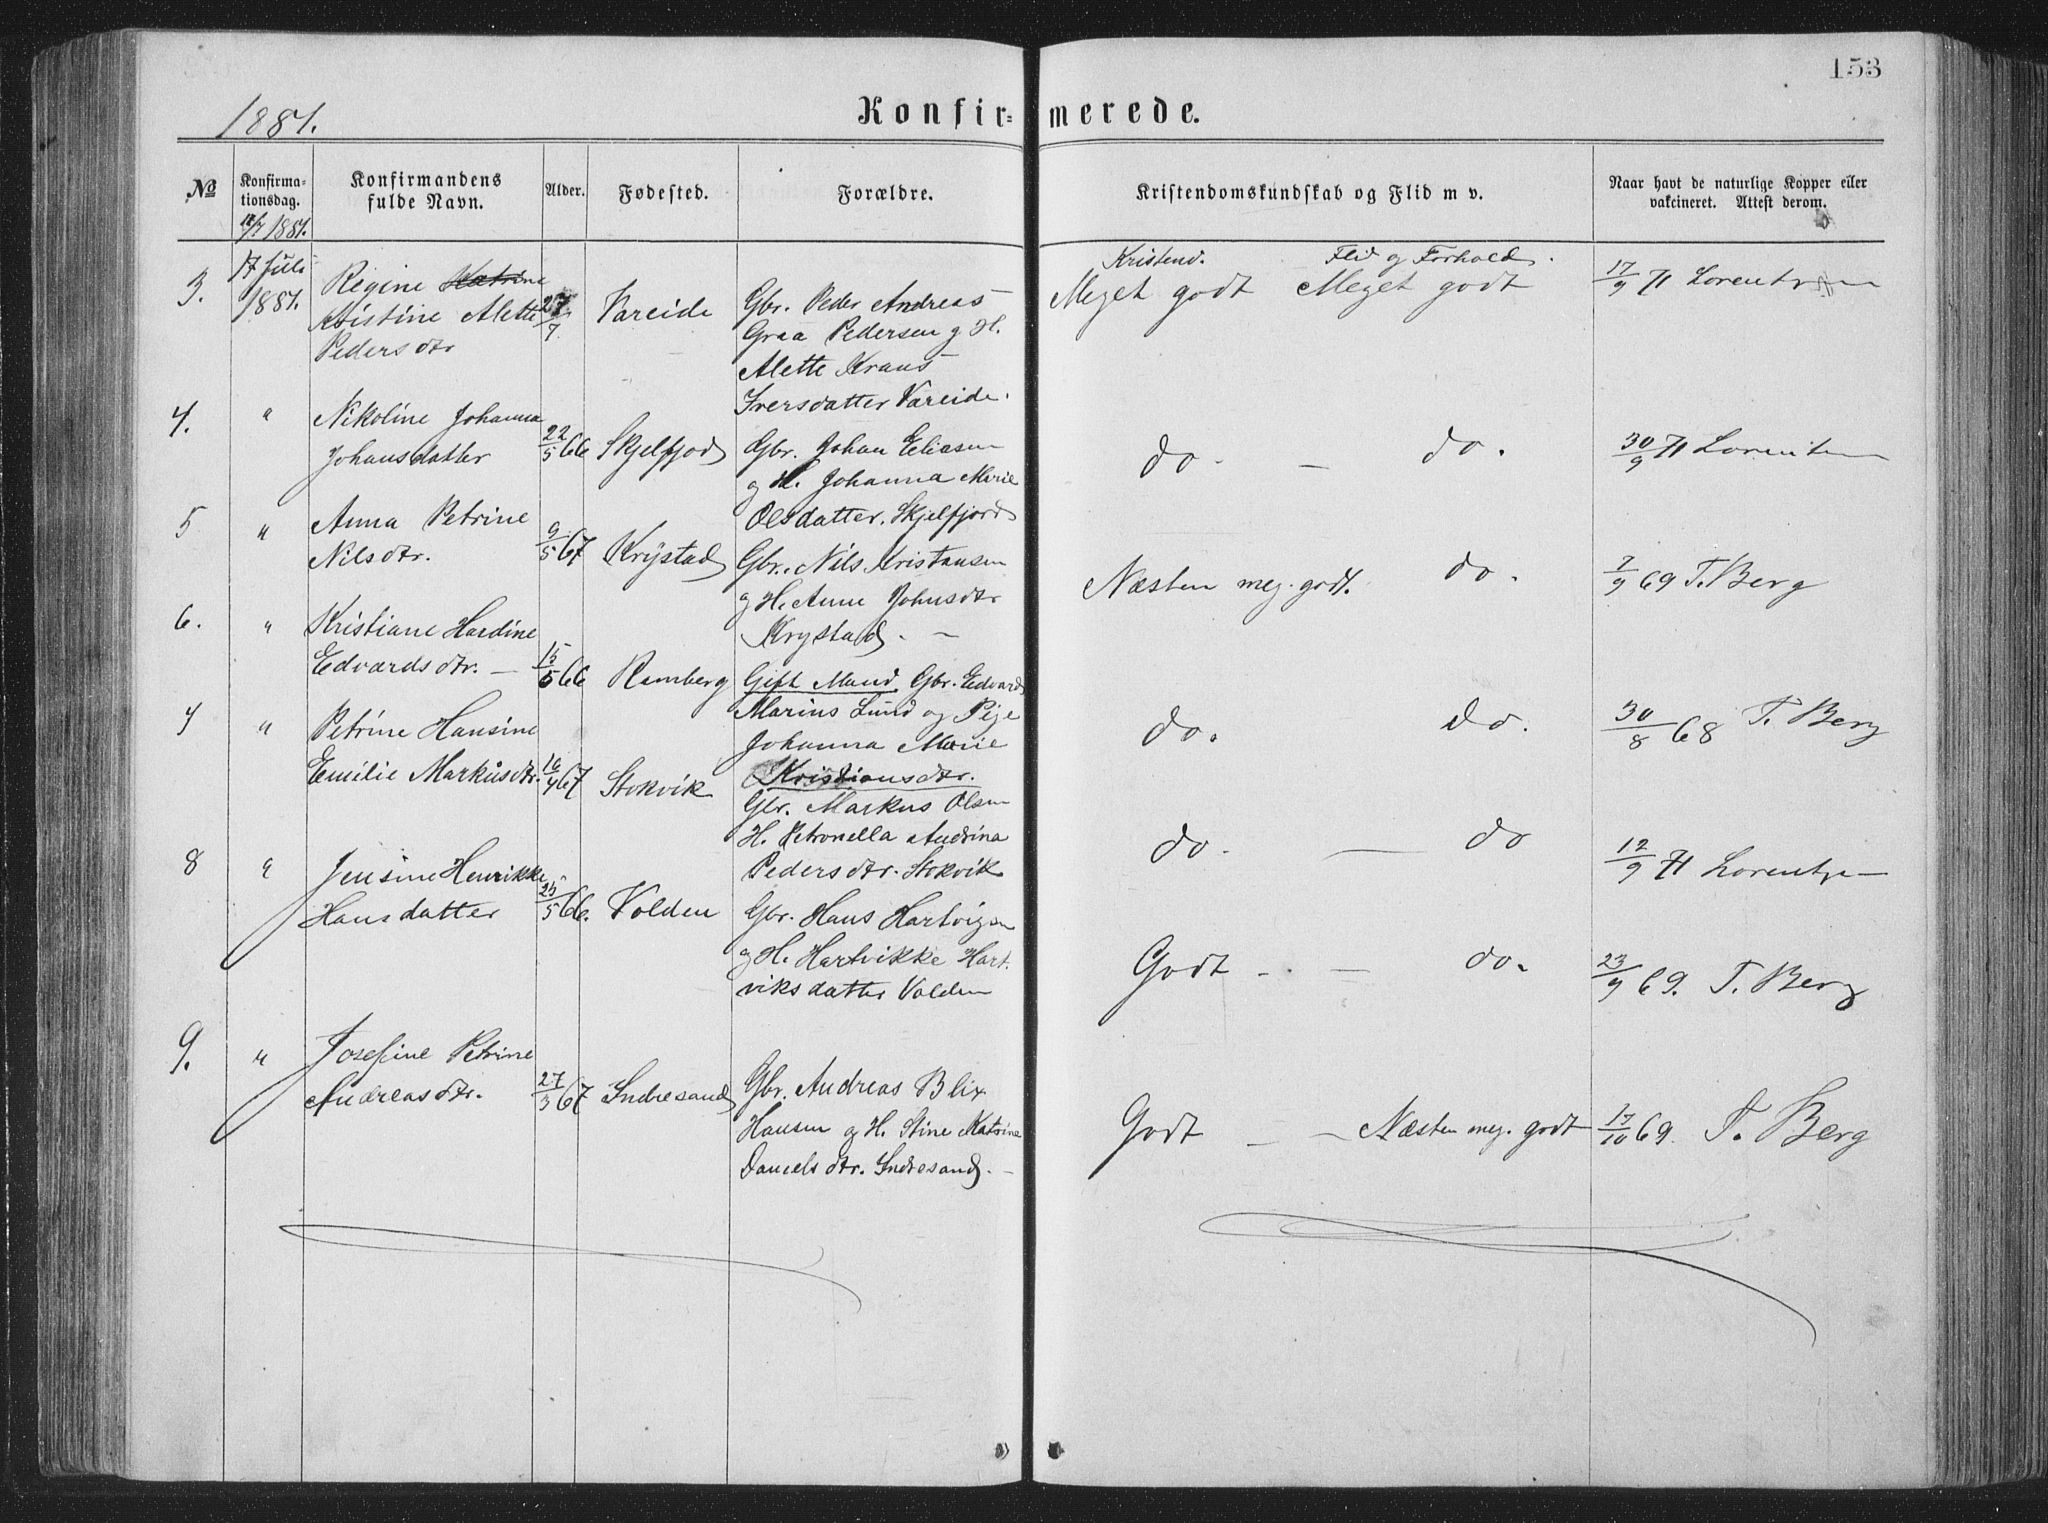 153
1881.
Konfir-
merede.
№
Konfirma-
tionsdag.
17/7 1881.
Konfirmandens
fulde Navn.
Alder.
Fødested.
Forældre.
Kristendomskundskab og Flid m v.
Naar havt de naturlige Kopper eller
vakcineret. Attest derom.
3.
17 Juli
1881.
Regine Katrine
Kristine Alette
Pedersdtr
27/7
Vareide
Gbr. Peder Andreas
Graa Pedersen g H.
Alette Kraus
Iversdatter Vareide.
Kristend.
Flid og Forhold.
Meget godt
Meget godt
17/9 71 Lorentzen
4.
"
Nikoline Johanna
Johansdatter
22/5 66
Skjelfjord
Gbr. Johan Eliasen
og H. Johanna Marie
Olsdatter. Skjelfjord
do. –
do.
30/9 71 Lorentzen
5
"
Anna Petrine
Nilsdtr.
9/5 67
Krystad
Gbr. Nils Kristansen
og H. Anne Johnsdtr
Krystad. –
Næsten meg. godt.
do.
7/9 69 T. Berg
6.
"
Kristiane Hardine
Edvardsdtr. –
15/5 66
Ramberg
Gift Mand Gbr. Edvard
Marius Lund og Pige
Johanna Marie
Kristiansdtr.
do.
do.
30/8 68 T. Berg
7
"
Petrine Hansine
Emilie Markusdtr.
16/4 67
Stokvik
Gbr. Markus Olsen
H. Petronella Andrina
Pedersdtr. Stokvik
do. –
do
12/9 71 Lorentzen
8
"
Jensine Henrikke
Hansdatter
25/5 66.
Volden
Gbr. Hans Hartvigsen
og H. Hartvikke Hart-
viksdatter Volden
Godt – –
do.
23/9 69. T. Berg
9.
"
Josefine Petrine
Andreasdtr.
27/3 67
Indresand
Gbr. Andreas Blix
Hansen og H. Stine Katrine
Danielsdtr. Indresand. –
Godt – –
Næsten meg. godt
17/10 69. T. Berg